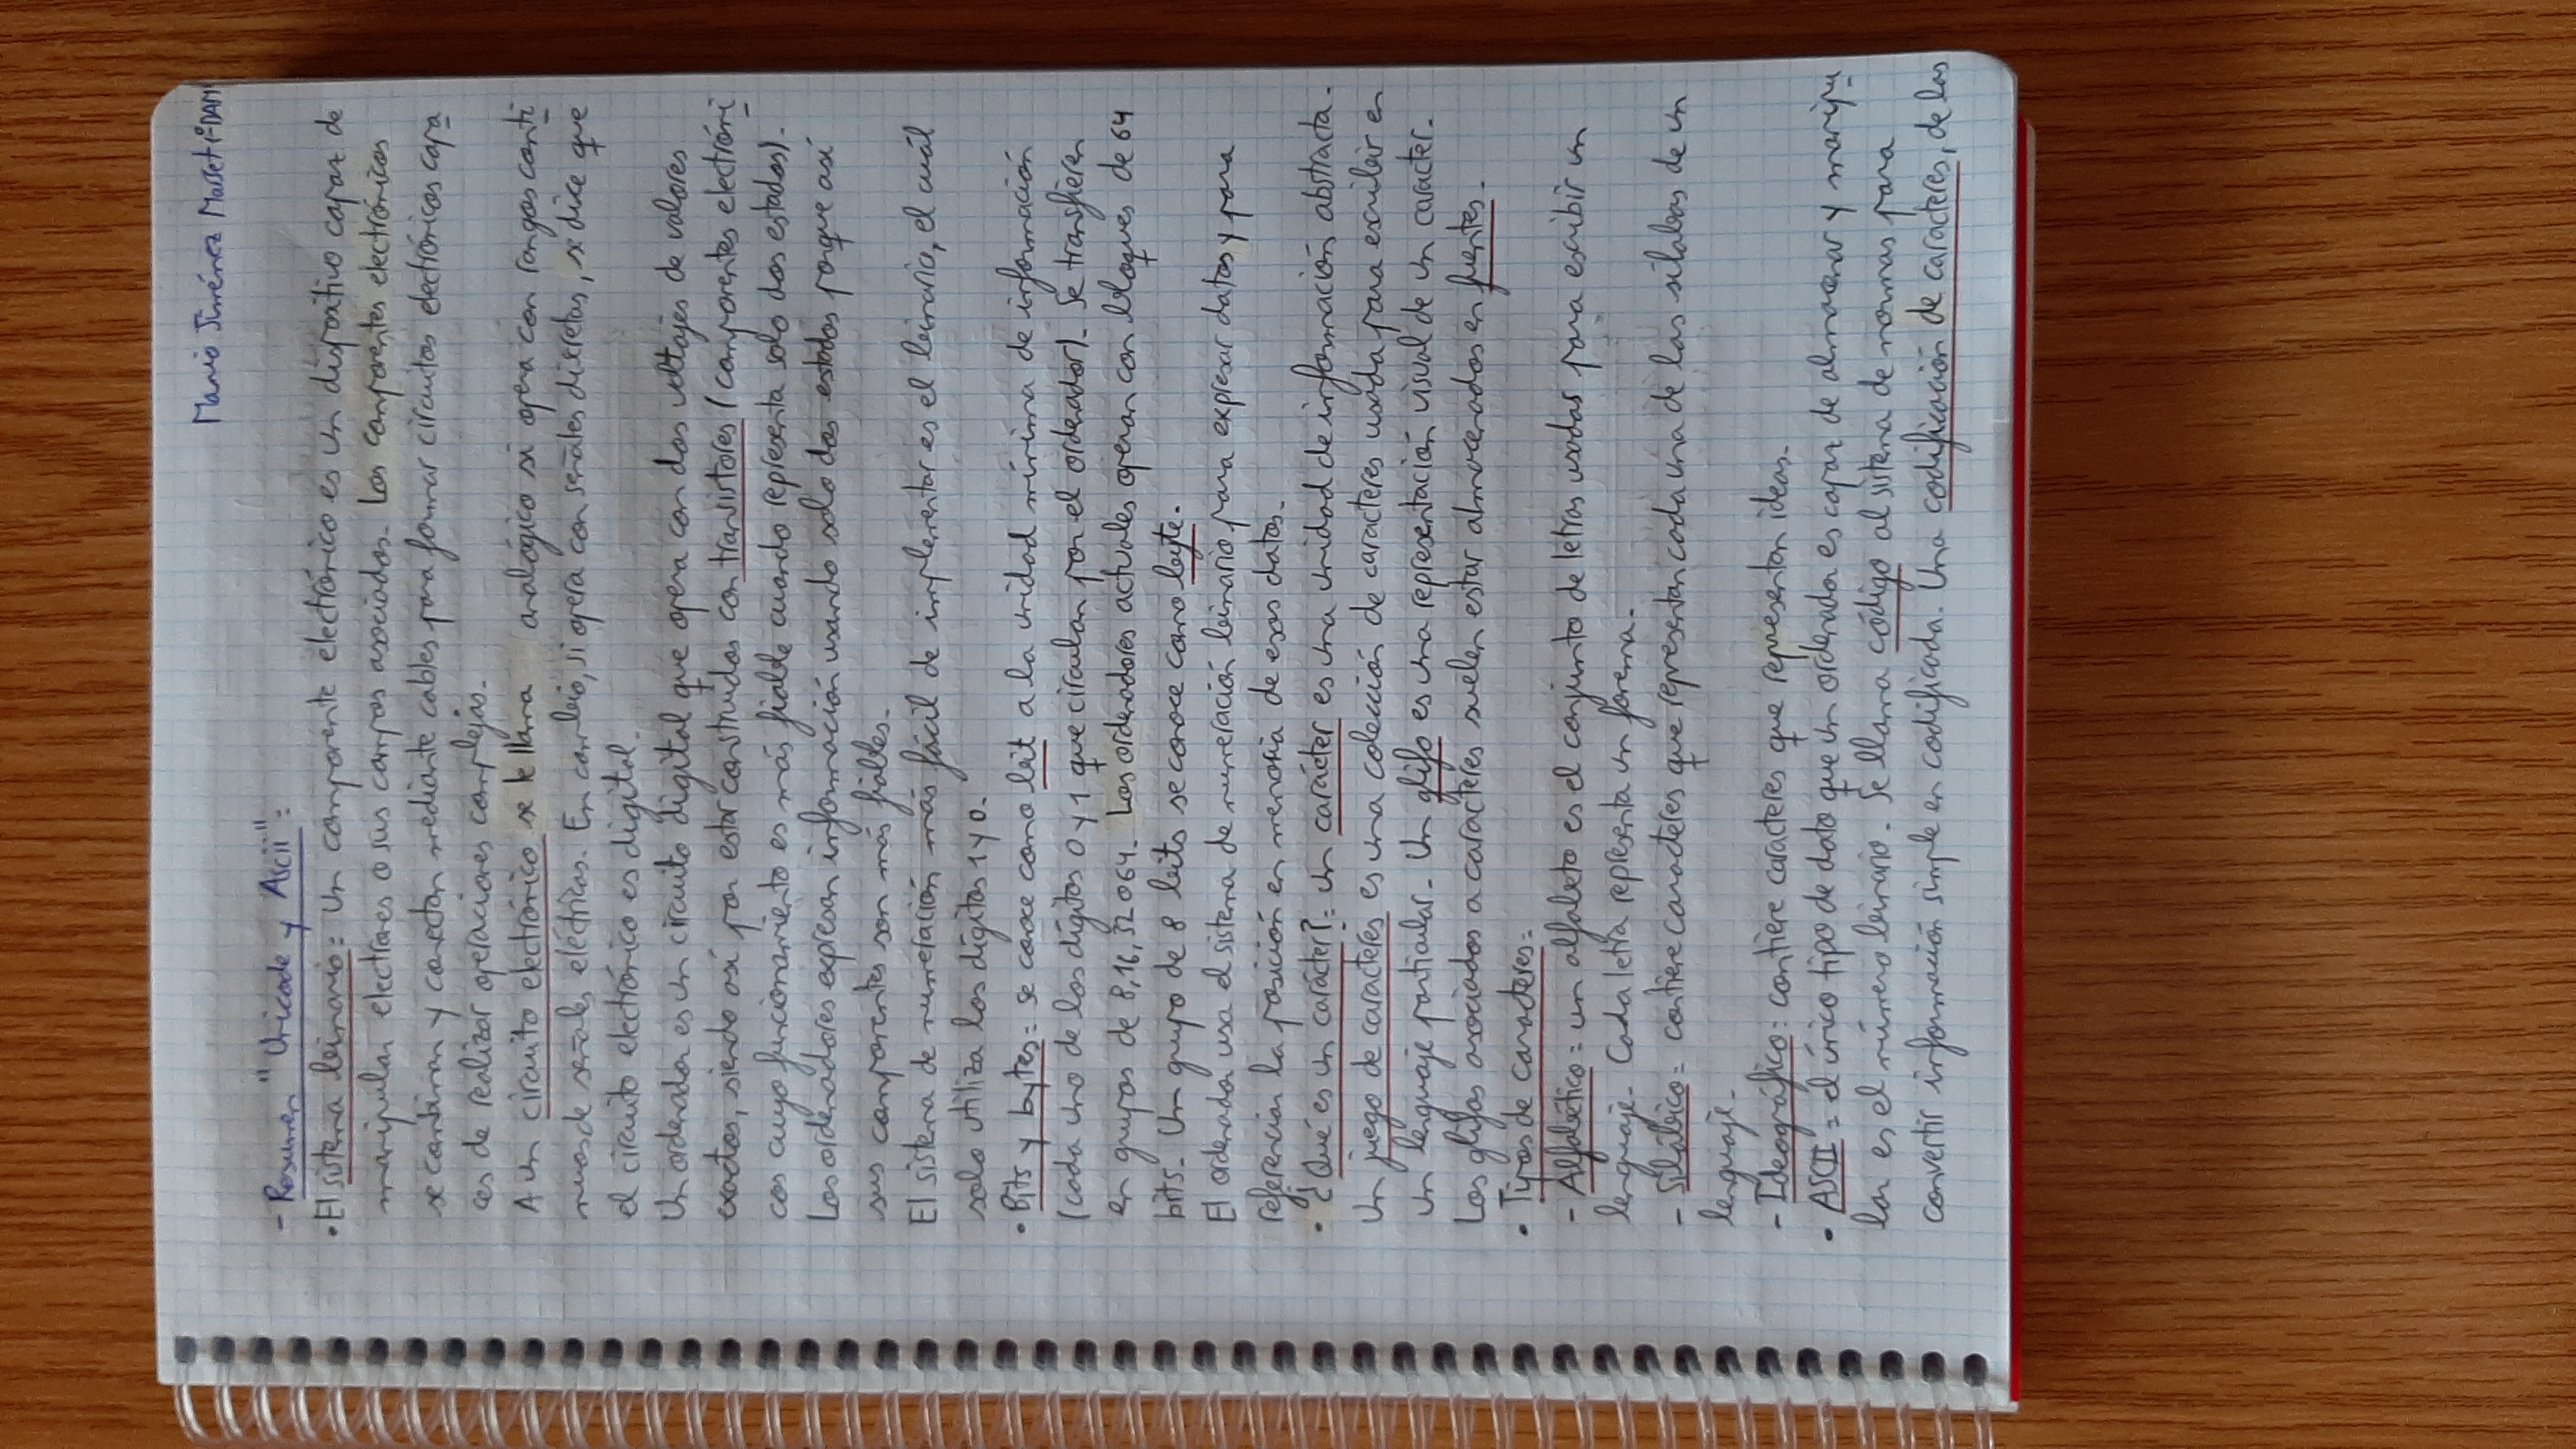 Mario Jiménez Marset 1ºDAM
- Resumen "Unicode y Ascii":
• El sistema binario: un componente electrónico es un dispositivo capaz de
manipular electrones o sus campos asociados. Los componentes electrónicos
se combinan y conectan mediante cables para formar circuitos electrónicos capa
ces de realizar operaciones complejas.
A un circuito electrónico se le llama analógico si opera con rangos conti
nuos de señales eléctricas. En cambio, si opera con señales discretas, se dice que
el circuito electrónico es digital.
Un ordenador es un circuito digital que opera con dos voltajes de valores
exactos, siendo así por estar construidos con transistores (componentes electróni
cos cuyo funcionamiento es más fiable cuando representa solo dos estados).
Los ordenadores expresan información usando solo dos estados porque así
sus componentes son más fiables.
El sistema de numeración más fácil de implementar es el binario, el cuál
solo utiliza los dígitos 1 y 0.
• Bits y bytes: se conoce como bit a la unidad mínima de información
(cada uno de los dígitos 0 y 1 que circulan por el ordenador). Se transfieren
en grupos de 8, 16, 32 o 64. Los ordenadores actuales operan con bloques de 64
bits. Un grupo de 8 bits se conoce como byte.
El ordenador usa el sistema de numeración binario para expresar datos y para
referenciar la posición en memoria de esos datos.
• ¿Qué es un carácter?: un carácter es una unidad de información abstracta.
Un juego de caracteres es una colección de caracteres usada para escribir en
un lenguaje particular. Un glifo es una representación visual de un caracter.
Los glifos asociados a caracteres suelen estar almacenados en fuentes.
• Tipos de caracteres:
- Alfabético: un alfabeto es el conjunto de letras usadas para escribir un
lenguaje. Cada letra representa un fonema.
- Silábico: contiene caracteres que representan cada una de las sílabas de un
lenguaje.
- Ideográfico: contiene caracteres que representan ideas.
• ASCII: el único tipo de dato que un ordenador es capaz de almacenar y manipu
lar es el número binario. Se llama código al sistema de normas para
convertir información simple en codificada. Una codificación de caracteres, de los